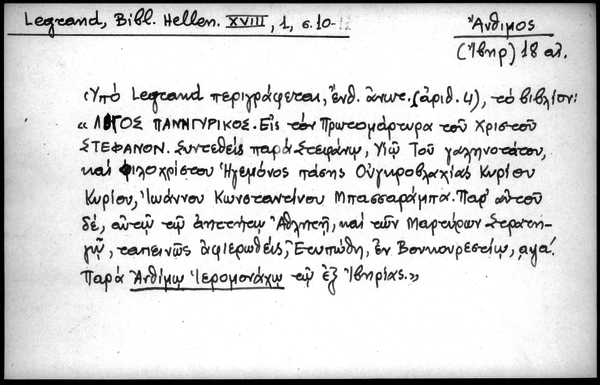 Legrand, Bibl. Hellen. XVIII, 1, σ. 10-11
Ἄνθιμος
(Ἴβηρ) 18 αι.
Ὑπό Legrand περιγράφεται, ἔνθ. ἀνωτ. (ἀριθ. 4), τό βιβλίον:
« ΛΟΓΟΣ ΠΑΝΗΓΥΡΙΚΟΣ. Εἰς τόν Πρωτομάρτυρα τοῦ Χριστοῦ
ΣΤΕΦΑΝΟΝ. Συντεθείς παρά Στεφάνῳ, Υἱῷ Τοῦ γαληνοτάτου,
καί φιλοχρίστου Ἡγεμόνος πάσης Οὑγκροβλαχίας Κυρίου
Κυρίου, Ἰωάννου Κωνσταντίνου Μπασσαράμπα. Παρ' αὐτοῦ
δέ, αὐτῷ τῷ ἀηττήτῳ Ἀθλητῇ, καί τῶν Μαρτύρων Στρατη-
γῷ, ταπεινῶς ἀφιερωθείς, Ἐτυπώθη, ἐν Βουκουρεστίῳ, αψα'.
Παρά Ἀνθίμῳ Ἱερομονάχῳ τῷ ἐξ Ἰβηρίας.»